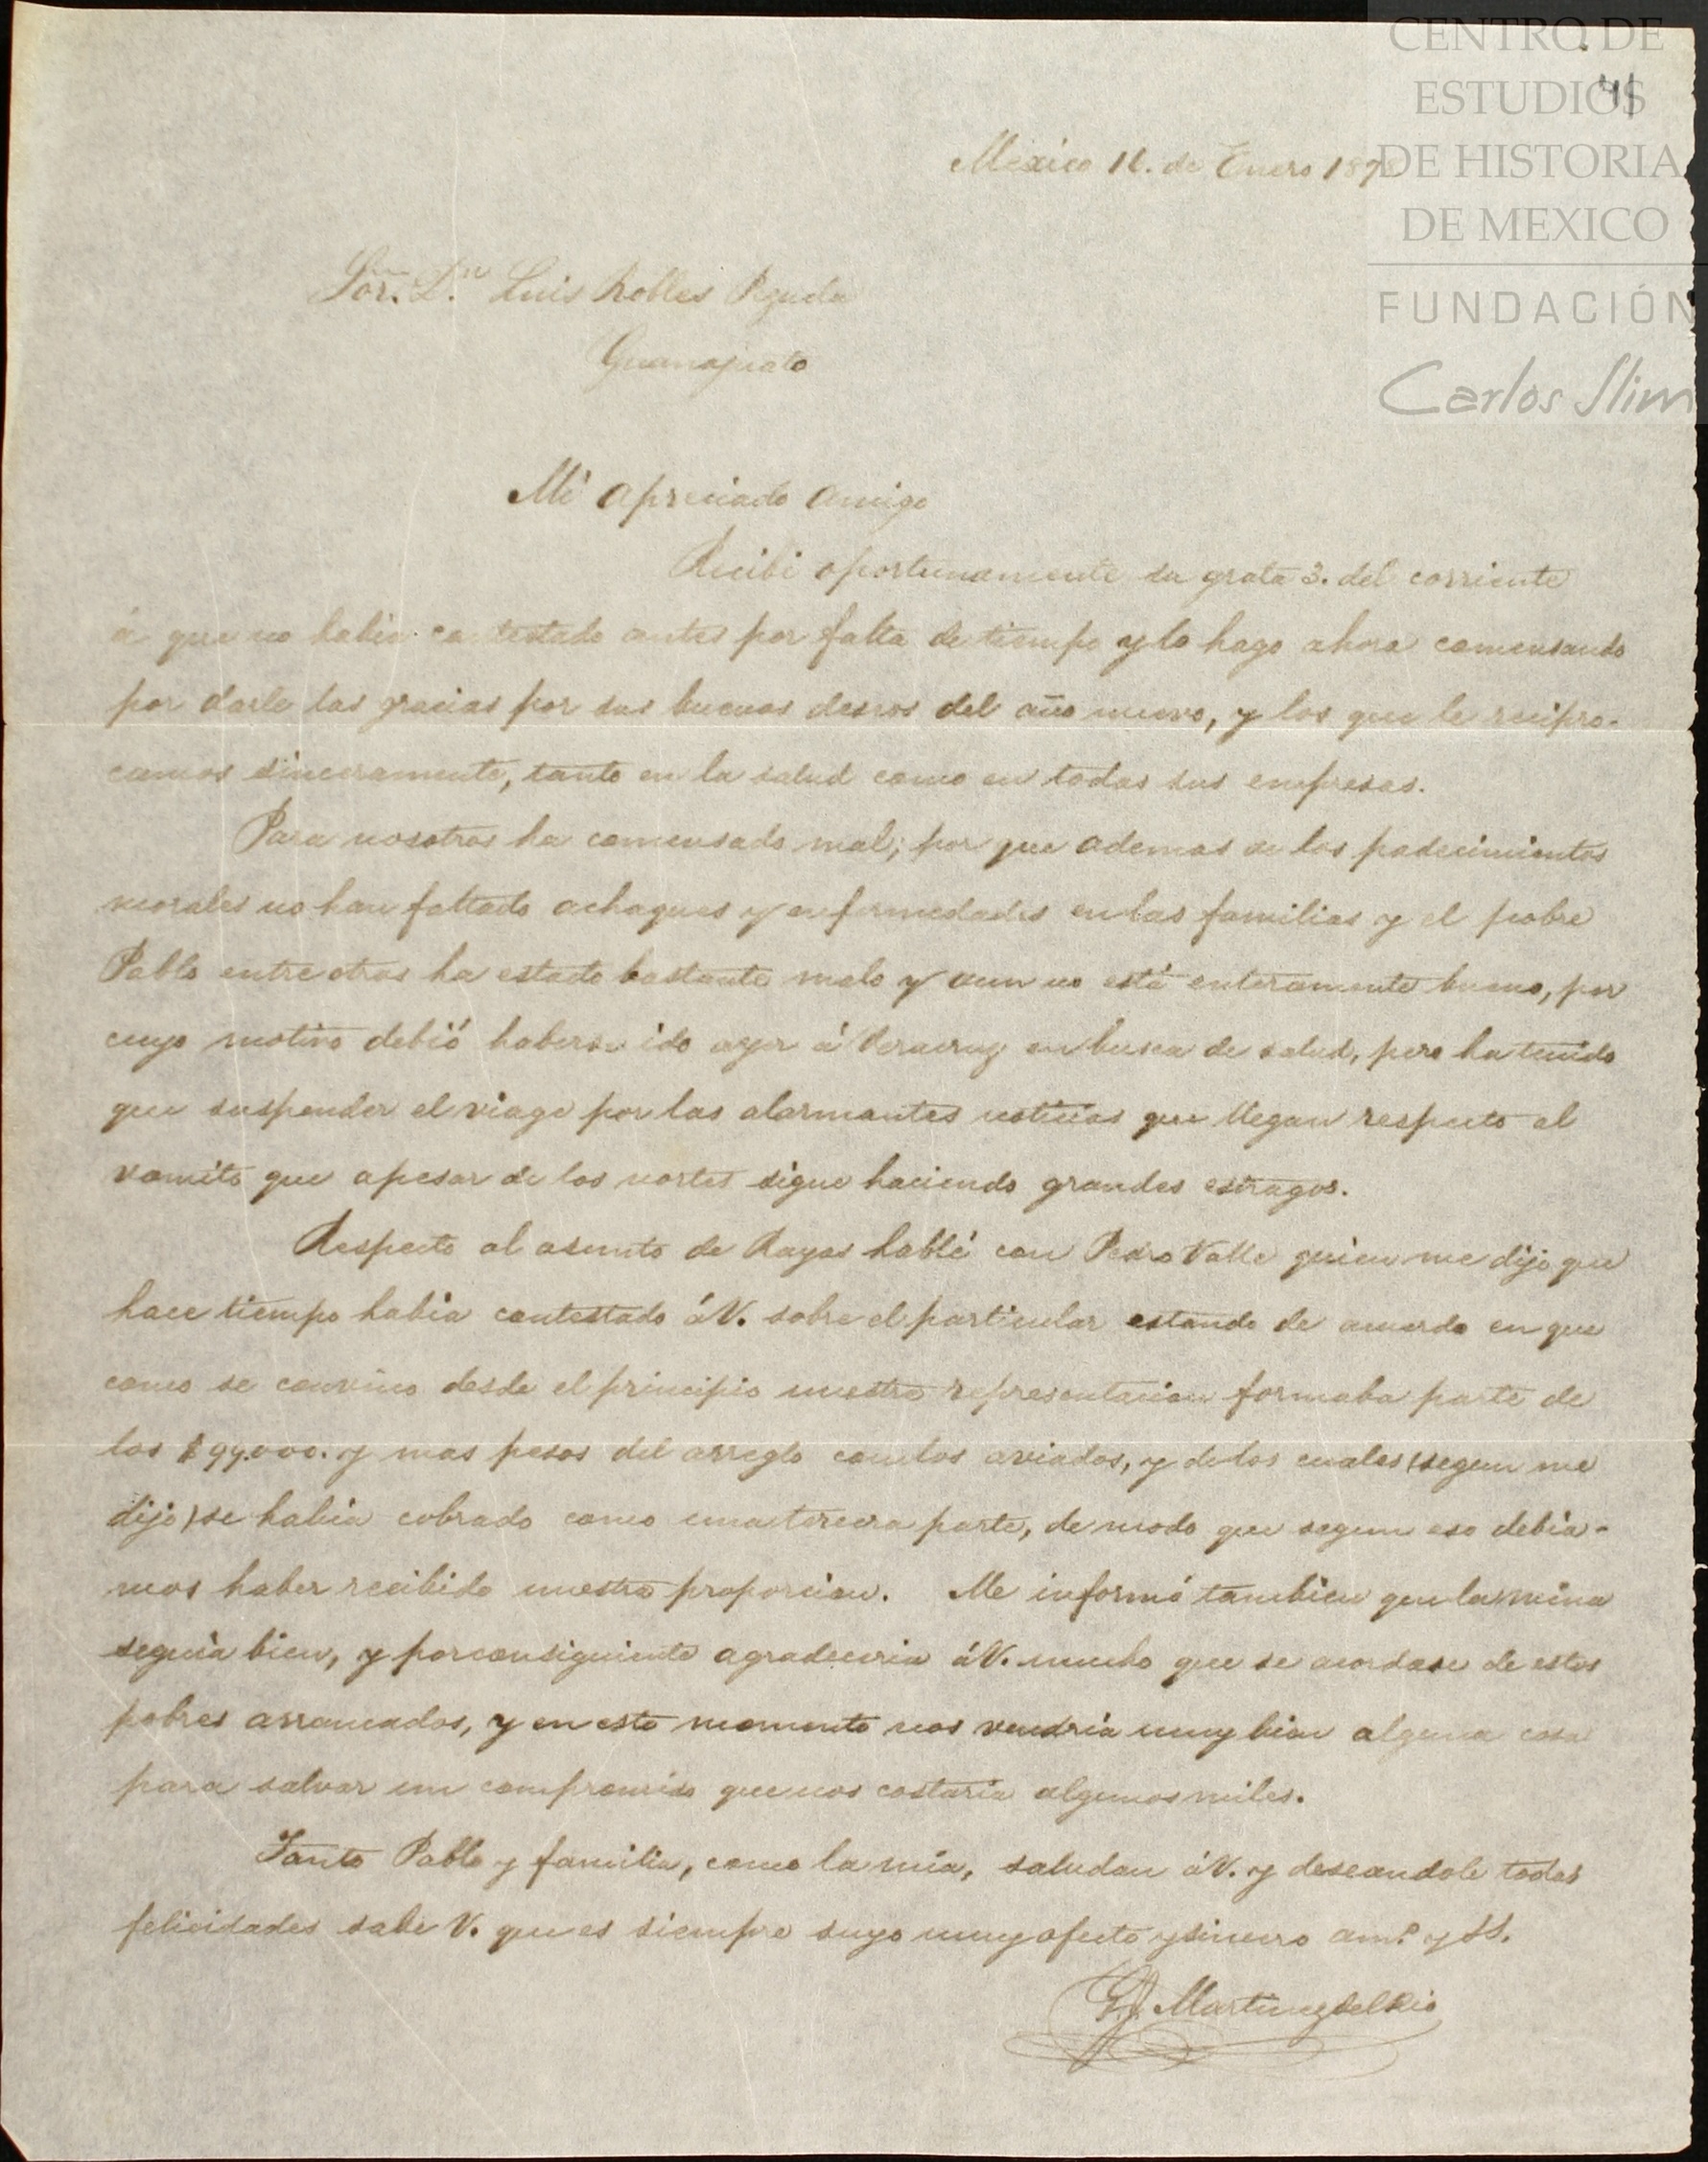 CENTRO DE
ESTUDIOS
41
DE HISTORIA
DE MEXICO
FUNDACIÓN
Carlos Slim
Mexico 12. de Enero 187
Sor. Dn. Luis Robles Pezuela
Guanajuato
Mi apreciado amigo
Recibi oportunamente su grata 3. del corriente
á que no habia contestado antes por falta de tiempo y lo hago ahora comensando
por darle las gracias por sus buenos deseos del año nuevo, y los que le recipro-
camos sinceramente, tanto en la salud como en todas sus empresas.
Para nosotros ha comensado mal; por que ademas de los padecimientos
morales no han faltado achaques y enfermedades en las familias y el pobre
Pablo entre otros ha estado bastante malo y aun no está enteramente bueno, por
cuyo motivo debió haberse ido ayer á Veracruz en busca de salud, pero ha tenido
que suspender el viage por las alarmantes noticias que llegan respecto al
vomito que apesar de los nortes sigue haciendo grandes estragos.
Respecto al asunto de Rayas hablé con Pedro Valle quien me dijo que
hace tiempo habia contestado á V. sobre el particular estando de acuerdo en que
como se convino desde el principio nuestra representacion formaba parte de
los $99.000. y mas pesos del arreglo con los aviados, y de los cuales (segun me
dijo) se habia cobrado como una tercera parte, de modo que segun eso debia-
mos haber recibido nuestra proporcion. Me informó tambien que la mina
seguia bien, y por consiguiente agradeceria á V. mucho que se acordase de estos
pobres arrancados, y en este momento nos vendria muy bien alguna cosa
para salvar un compromiso que nos costaria algunos miles.
Tanto Pablo y familia, como la mia, saludan á V. y deseandole todas
felicidades sabe V. que es siempre suyo muy afecto y sincero amo. y SS.
Martinez del Rio